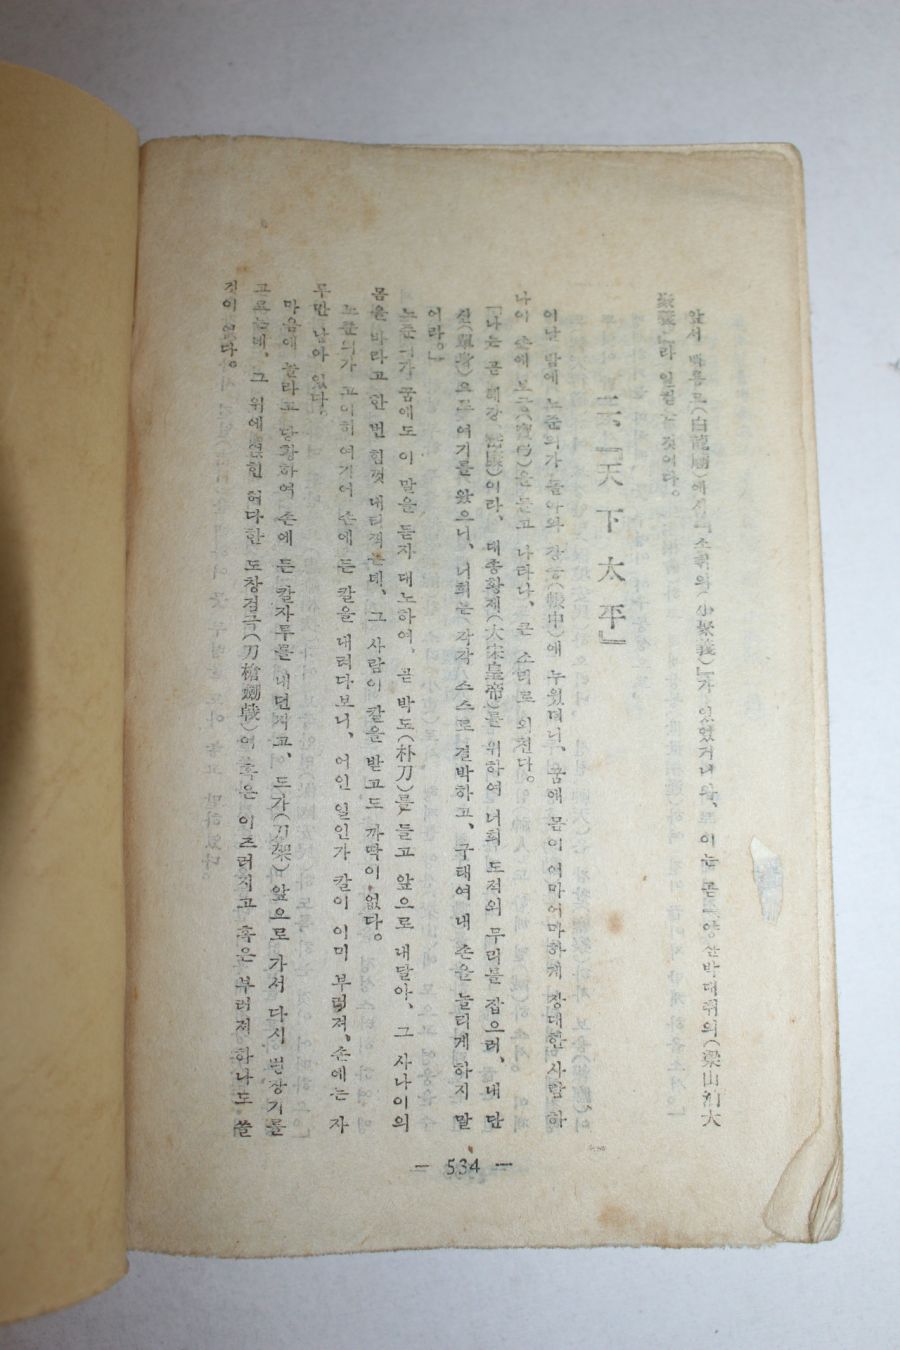 앞서 백룡묘(白龍廟)에선 『소취의(小聚義)』가 있었거니와, 이는 곧 『양산박대취의(梁山泊大
聚義)』라 일컬는 것이다.
三、『天下太平』
이날 밤에 노준의가 돌아와 장중(帳中)에 누웠더니, 꿈에 몸이 어마어마하게 장대한 사람 하
나이 손에 보궁(寶弓)을 들고 나타나, 큰 소리로 외친다.
『나는 곧 혜강(嵆康)이라, 대송황제(大宋皇帝)를 위하여 너희 도적의 무리를 잡으러, 내 단
신(單身)으로 여기를 왔으니, 너희는 각각 스스로 결박하고, 구태여 내 손을 놀리게 하지 말
어라。』
노준의가 꿈에도 이 말을 듣자 대노하여, 곧 박도(朴刀)를 들고 앞으로 내달아, 그 사나이의
몸을 바라고 한번 힘껏 내리객는데, 그 사람이 칼을 받고도 까딱이 없다。
노준의가 고이히 여기어 손에 든 칼을 내려다보니, 어인 일인가 칼이 이미 부러져, 손에는 자
루만 남아 있다。
마음에 놀라고 당황하여 손에 든 칼자루를 내던지고, 도가(刀架) 앞으로 가서 다시 병장기를
고르는데, 그 위에 얹힌 허다한 도창검극(刀槍劍戟)이 혹은 이즈러지고 혹은 부러져 하나도 쓸
것이 없다。
— 534 —